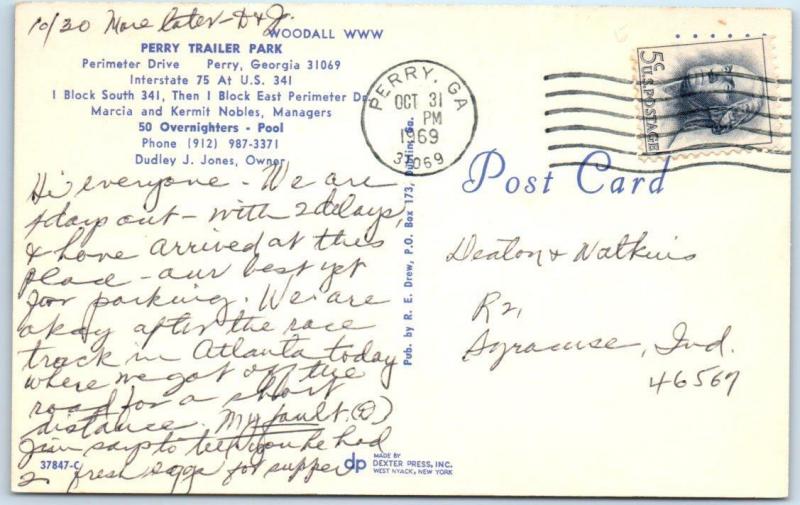 10/30 More later - D & J.
WOODALL WWW
PERRY TRAILER PARK
Perimeter Drive Perry, Georgia 31069
Interstate 75 At U.S. 341
1 Block South 341, Then 1 Block East Perimeter Dr.
Marcia and Kermit Nobles, Managers
50 Overnighters - Pool
Phone (912) 987-3371
Dudley J. Jones, Owner
Hi everyone - We are
4 days out - with 2 delays,
& have arrived at this
place - our best yet
for parking. We are
okay after the race
track in Atlanta today
where we got off the
road for a short
distance. My fault. (D)
Jim says to tell you he had
2 fresh eggs for supper
37847-C
Pub. by R. E. Drew, P.O. Box 173, Dublin, Ga.
dp
MADE BY
DEXTER PRESS, INC.
WEST NYACK, NEW YORK
PERRY, GA
OCT 31
PM
1969
31069
5c U.S. POSTAGE
Post Card
Deaton & Watkins
R 2,
Syracuse, Ind.
46567